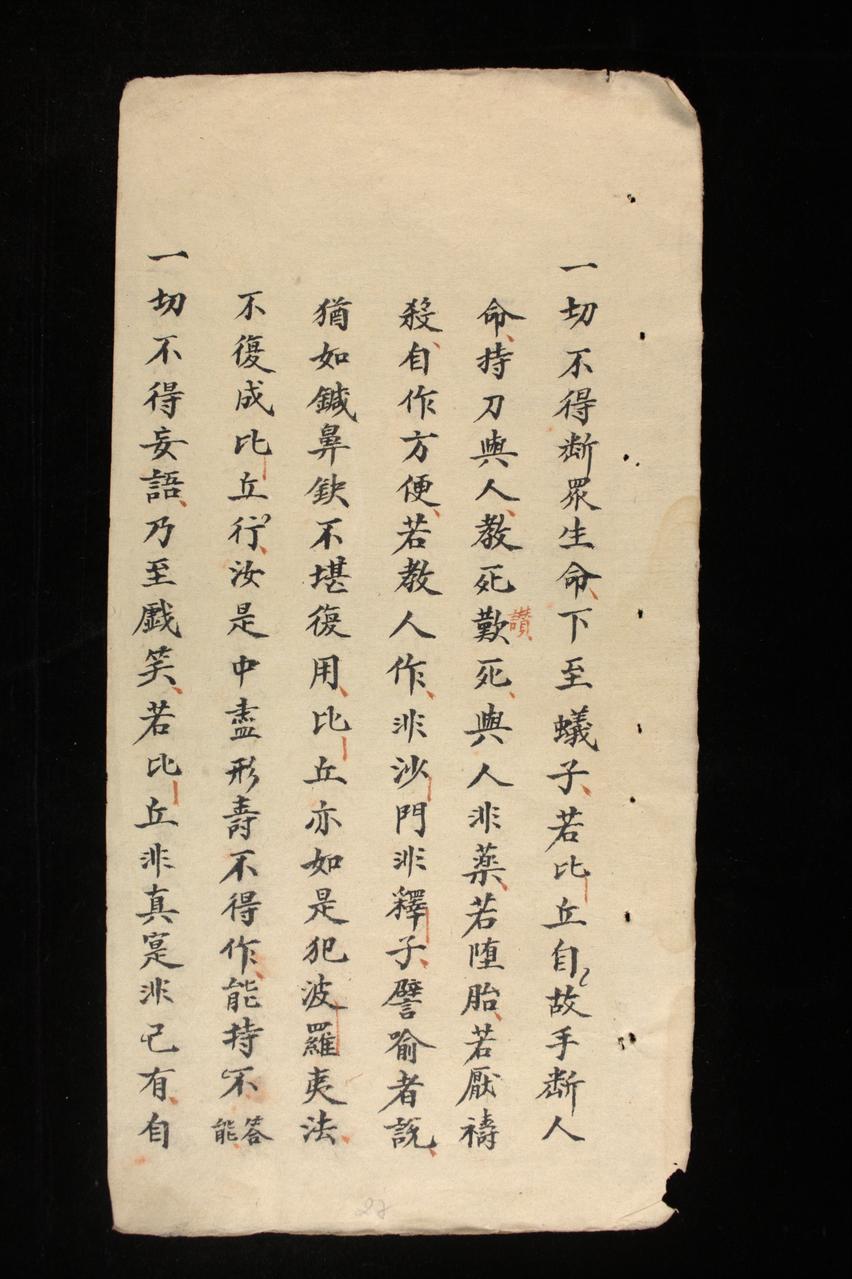 一切不得斷眾生命下至蟻子若比丘自故手斷人
命持刀與人教死歎讚死與人非藥若墮胎若厭禱
殺自作方便若教人作非沙門非釋子譬喻者說
猶如鍼鼻缺不堪復用比丘亦如是犯波羅夷法
不復成比丘行汝是中盡形壽不得作能持不答能
一切不得妄語乃至戲笑若比丘非真寔非己有自
27